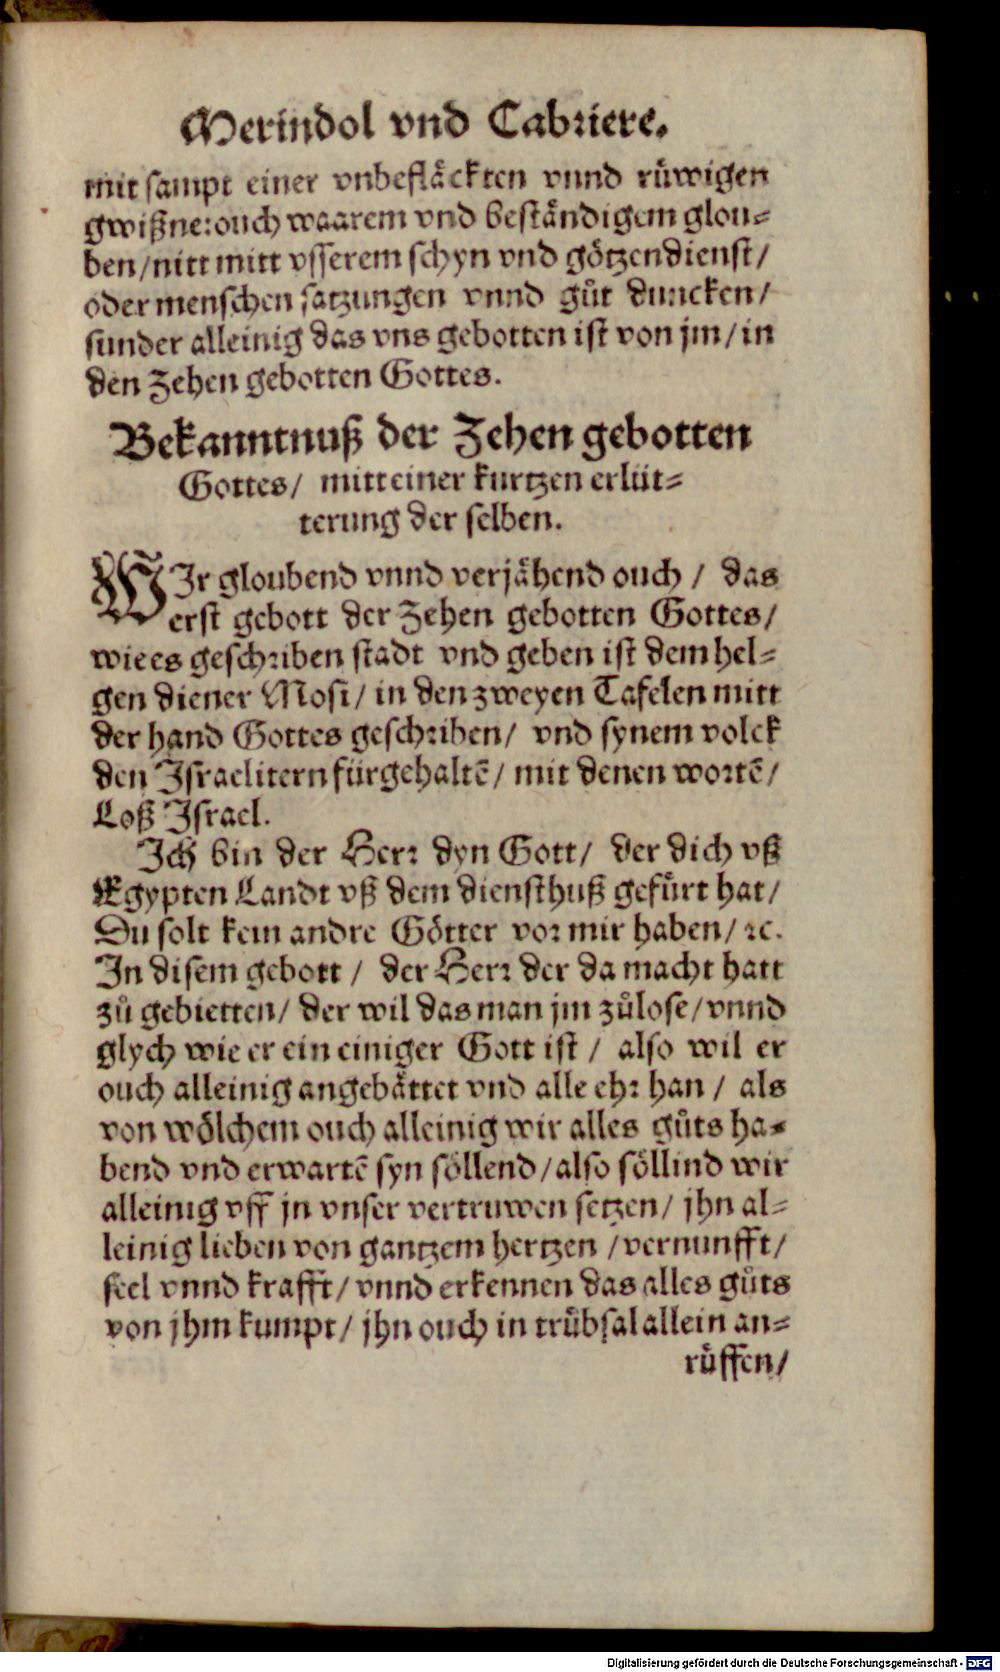 Merindol vnd Cabriere.
mit sampt einer vnbefläckten vnnd rüwigen
gwißne: ouch waarem vnd beständigem glou-
ben / nitt mitt vsserem schyn vnd götzendienst /
oder menschen satzungen vnnd gůt duncken /
sunder alleinig das vns gebotten ist von jm / in
den Zehen gebotten Gottes.
Bekanntnuß der Zehen gebotten
Gottes / mitt einer kurtzen erlüt-
terung der selben.
WIr gloubend vnnd verjähend ouch / das
erst gebott der Zehen gebotten Gottes /
wie es geschriben stadt vnd geben ist dem hel-
gen diener Mosi / in den zweyen Tafelen mitt
der hand Gottes geschriben / vnd synem volck
den Israelitern fürgehaltē / mit denen wortē /
Loß Israel.
Ich bin der Herr dyn Gott / der dich vß
Egypten Landt vß dem diensthuß gefürt hat /
Du solt kein andre Götter vor mir haben / ꝛc.
In disem gebott / der Herr der da macht hatt
zů gebietten / der wil das man jm zůlose / vnnd
glych wie er ein einiger Gott ist / also wil er
ouch alleinig angebättet vnd alle ehr han / als
von wölchem ouch alleinig wir alles gůts ha-
bend vnd erwartē syn söllend / also söllind wir
alleinig vff jn vnser vertruwen setzen / jhn al-
leinig lieben von gantzem hertzen / vernunfft /
seel vnnd krafft / vnnd erkennen das alles gůts
von jhm kumpt / jhn ouch in trübsal allein an-
rüffen /
Digitalisierung gefördert durch die Deutsche Forschungsgemeinschaft - DFG